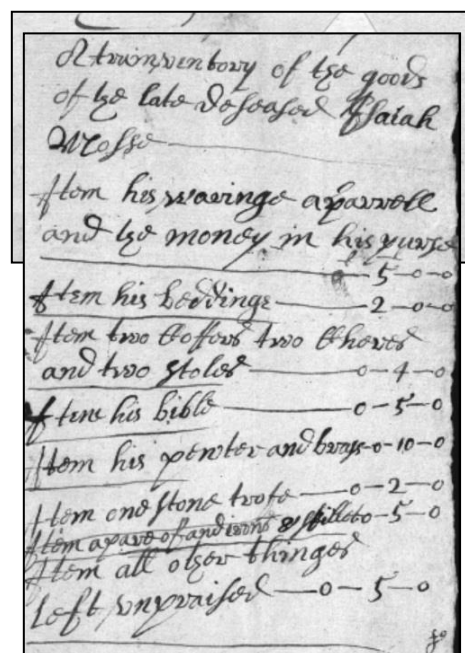 A trwinventory of the goods
of the late deseased Isaiah
Mosse
Item his waringe aparrell
and the money in his purse
5-0-0
Item his beddinge 2-0-0
Item two Coffers two Cheres
and two stoles 0-4-0
Item his bible 0-5-0
Item his pewter and brass 0-10-0
Item one stone trofe 0-2-0
Item a pare of andirons & skillet 0-5-0
Item all other thinges
left vnpraised 0-5-0